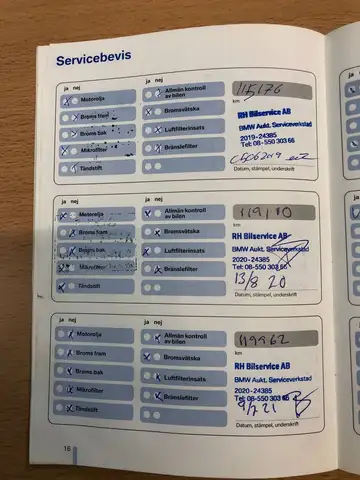 Servicebevis
ja nej
ja nej
Motorolja
Broms fram
Broms bak
Mikrofilter
Tändstift
Allmän kontroll
av bilen
Bromsvätska
Luftfilterinsats
Bränslefilter
115176
km
RH Bilservice AB
BMW Aukt. Serviceverkstad
2019-24385
Tel: 08-550 303 66
Datum, stämpel, underskrift
ja nej
ja nej
Motorolja
Broms fram
Broms bak
Mikrofilter
Tändstift
Allmän kontroll
av bilen
Bromsvätska
Luftfilterinsats
Bränslefilter
km
RH Bilservice AB
BMW Aukt. Serviceverkstad
2020-24385
Tel: 08-550 303 66
13/8 20
Datum, stämpel, underskrift
ja nej
ja nej
Motorolja
Broms fram
Broms bak
Mikrofilter
Tändstift
Allmän kontroll
av bilen
Bromsvätska
Luftfilterinsats
Bränslefilter
119962
km
RH Bilservice AB
BMW Aukt. Serviceverkstad
2020-24385
Tel: 08-550 303 66
9/7 21
Datum, stämpel, underskrift
16